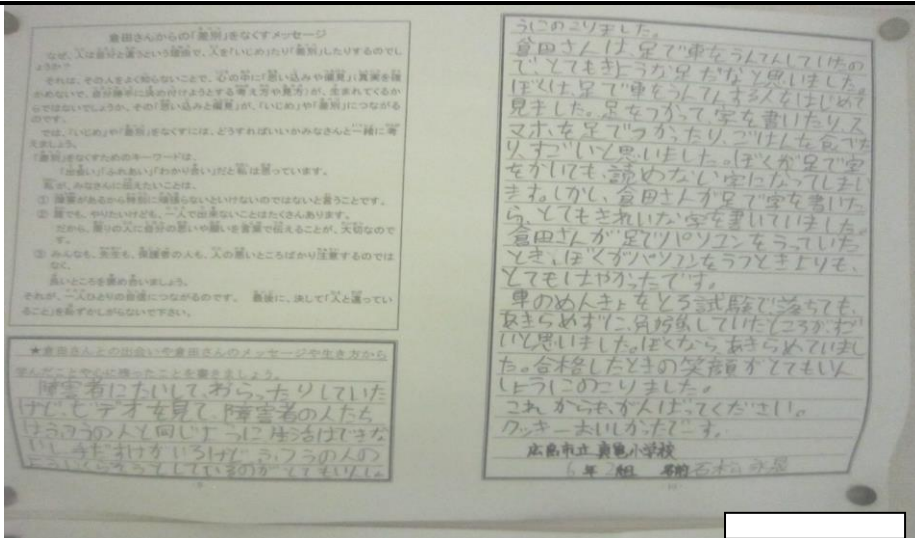 倉田さんからの「差別」をなくすメッセージ
なぜ、人は自分と違うという理由で、人を「いじめ」たり「差別」したりするのでし
ょうか？
それは、その人をよく知らないことで、心の中に「思い込みや偏見」(真実を確
かめないで、自分勝手に決め付けようとする考え方や見方)が、生まれてくるか
らではないでしょうか、その「思い込みと偏見」が、「いじめ」や「差別」につながる
のです。
では、「いじめ」や「差別」をなくすには、どうすればいいかみなさんと一緒に考
えましょう。
「差別」をなくすためのキーワードは、
「出会い」「ふれあい」「わかり合い」だと私は思っています。
私が、みなさんに伝えたいことは、
① 障害があるから特別に頑張らないといけないのではないと言うことです。
② 誰でも、やりたいけども、一人で出来ないことはたくさんあります。
だから、周りの人に自分の思いや願いを言葉で伝えることが、大切なので
す。
③ みんなも、先生も、保護者の人も、人の悪いところばかり注意するのでは
なく、
良いところを褒め合いましょう。
それが、一人ひとりの自信につながるのです。 最後に、決して「人と違ってい
ること」を恥ずかしがらないで下さい。
★倉田さんとの出会いや倉田さんのメッセージや生き方から
学んだことや心に残ったことを書きましょう。
障害者にたいして、わらったりしていた
けど、ビデオを見て、障害者の人たち
はふつうの人と同じように生活はできな
いし、手だすけがいるけど、ふつうの人の
ようにくらそうとしているのがとてもいんしょ
うにのこりました。
倉田さんは、足で車をうんてんしていたの
で、とてもきような足だなと思いました。
ぼくは足で車をうんてんする人をはじめて
見ました。足をつかって字を書いたり、ス
マホを足でつかったり、ごはんを食べた
り、すごいと思いました。ぼくが足で字
をかいても、読めない字になってしまい
ます。しかし、倉田さんが足で字を書いた
ら、とてもきれいな字を書いていました。
倉田さんが足でパソコンをうっていた
とき、ぼくがパソコンをうつときよりも、
とてもはやかったです。
車のめんきょをとる試験で落ちても、
あきらめずに、勉強していたところがすご
いと思いました。ぼくなら、あきらめていまし
た。合格したときの笑顔がとてもいん
しょうにのこりました。
これからも、がんばってください。
クッキーおいしかったでーす。
広島市立真亀小学校
6年2組 名前石松